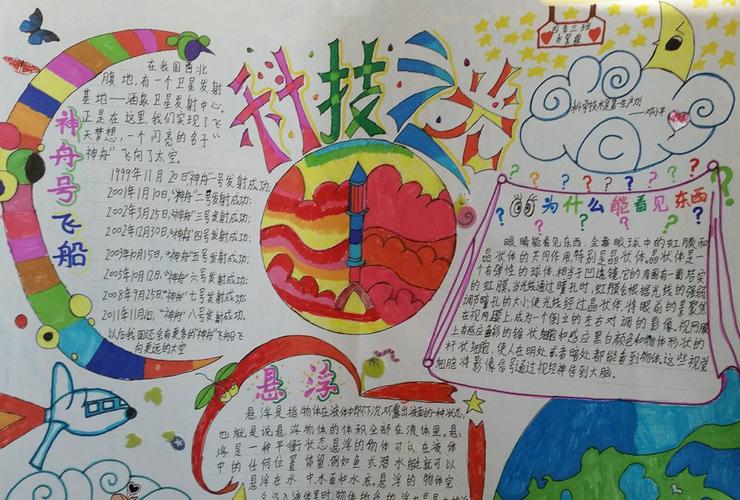 科技之光
四年三班
科学技术是第一生产力
——邓小平
神舟号飞船
在我国西北
腹地,有一个卫星发射
基地——酒泉卫星发射中心,
正是在这里,我们实现了飞
天梦想,一个闪亮的名字“
神舟”飞向了太空.
1999年11月20日“神舟”一号发射成功;
2001年1月10日,“神舟”二号发射成功;
2002年3月25日“神舟”三号发射成功;
2002年12月30日“神舟”四号发射成功;
2003年10月15日,“神舟”五号发射成功;
2005年10月12日,“神舟”六号发射成功;
2008年9月25日“神舟”七号发射成功;
2011年11月1日,“神舟”八号发射成功.
以后我国还会有更多的“神舟”飞船飞
向更远的太空
为什么能看见东西
眼睛能看见东西,全靠眼球中的虹膜和
晶状体的共同作用,特别是晶状体,晶状体是一
个有弹性的球体,相当于凹透镜,它的周围有一圈节实
的虹膜.当光线通过瞳孔时,虹膜会根据光线的强弱
调节瞳孔的大小,使光线经过晶状体,将眼前的景聚焦
在视网膜上,成为一个倒立的左右对调的影像.视网膜
上有感应色彩的锥状细胞和感应黑白颜色和物体形状的
杆状细胞,使人在明处或者暗处都能看到物体.这些视觉
细胞将影像信号通过视经神传到大脑.
悬浮
悬浮是指物体在液体中既不下沉,不露出液面的一种状态,
也就是说悬浮物体的体积全部在液体里.悬
浮是一种平衡状态,悬浮的物体可以在液体
中的任何位置停留,例如鱼或潜水艇就可以
悬浮在水中,水面和水底.悬浮的物体完